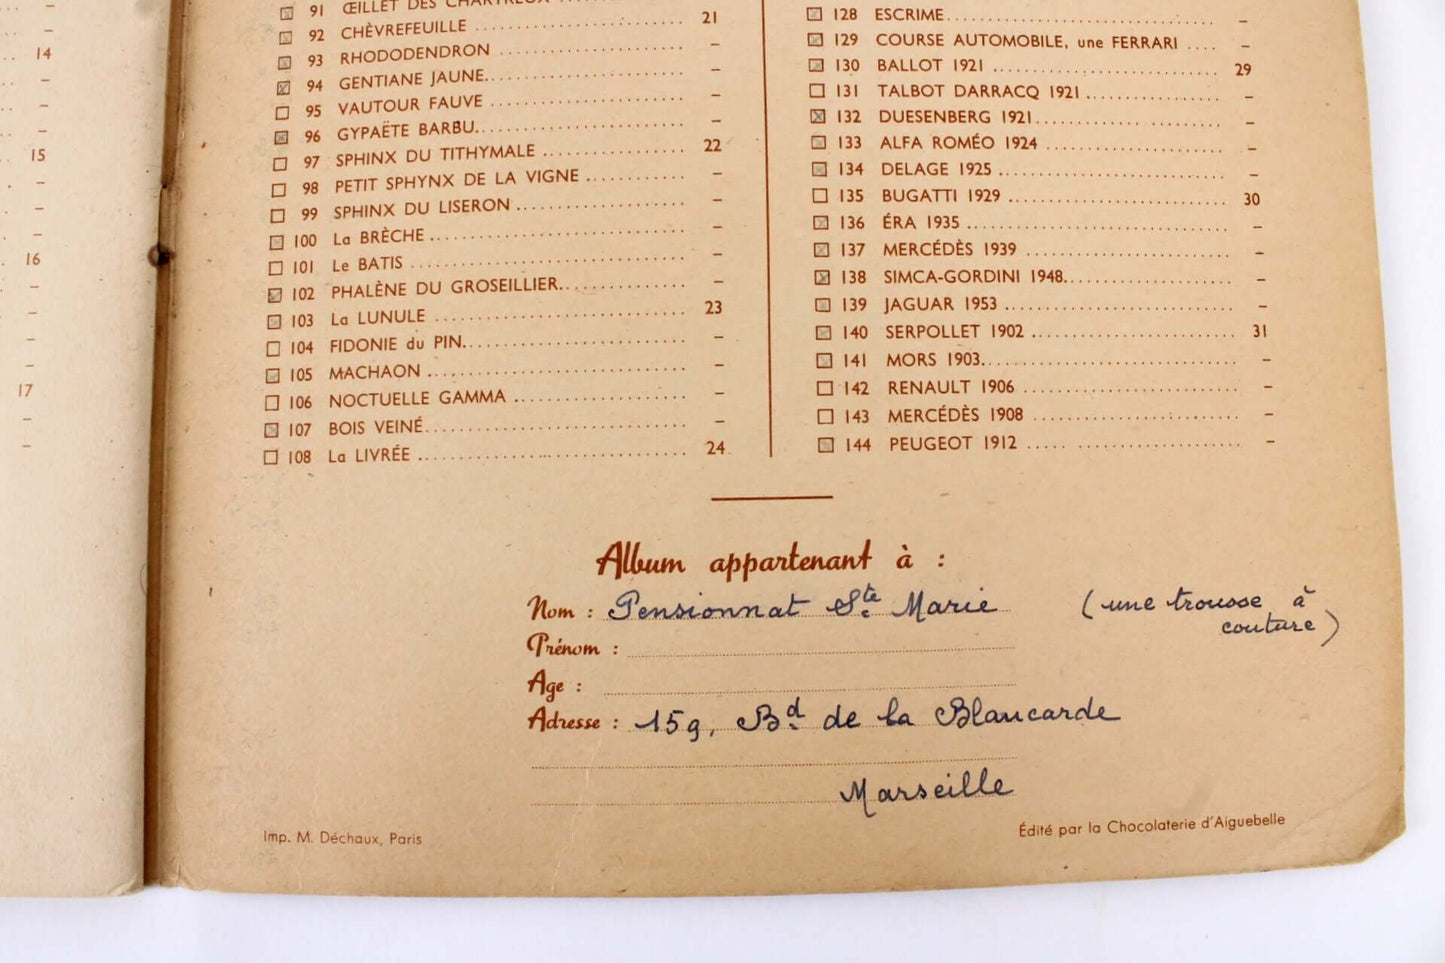 14
15
16
17
91 ŒILLET DES CHARTREUX
92 CHÈVREFEUILLE ..... 21
93 RHODODENDRON ..... –
94 GENTIANE JAUNE ..... –
95 VAUTOUR FAUVE ..... –
96 GYPAËTE BARBU ..... –
97 SPHINX DU TITHYMALE ..... 22
98 PETIT SPHYNX DE LA VIGNE ..... –
99 SPHINX DU LISERON ..... –
100 La BRÈCHE ..... –
101 Le BATIS ..... –
102 PHALÈNE DU GROSEILLIER ..... –
103 La LUNULE ..... 23
104 FIDONIE du PIN ..... –
105 MACHAON ..... –
106 NOCTUELLE GAMMA ..... –
107 BOIS VEINÉ ..... –
108 La LIVRÉE ..... 24
128 ESCRIME ..... –
129 COURSE AUTOMOBILE, une FERRARI .... –
130 BALLOT 1921 ..... 29
131 TALBOT DARRACQ 1921 ..... –
132 DUESENBERG 1921 ..... –
133 ALFA ROMÉO 1924 ..... –
134 DELAGE 1925 ..... –
135 BUGATTI 1929 ..... 30
136 ÉRA 1935 ..... –
137 MERCÉDÈS 1939 ..... –
138 SIMCA-GORDINI 1948 ..... –
139 JAGUAR 1953 ..... –
140 SERPOLLET 1902 ..... 31
141 MORS 1903 ..... –
142 RENAULT 1906 ..... –
143 MERCÉDÈS 1908 ..... –
144 PEUGEOT 1912 ..... –
Album appartenant à :
Nom : Pensionnat Ste Marie (une trousse à
couture)
Prénom :
Age :
Adresse : 159, Bd de la Blancarde
Marseille
Imp. M. Déchaux, Paris
Édité par la Chocolaterie d'Aiguebelle